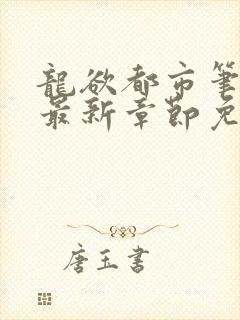 龍欲都市筆
最新章節免
唐玉書